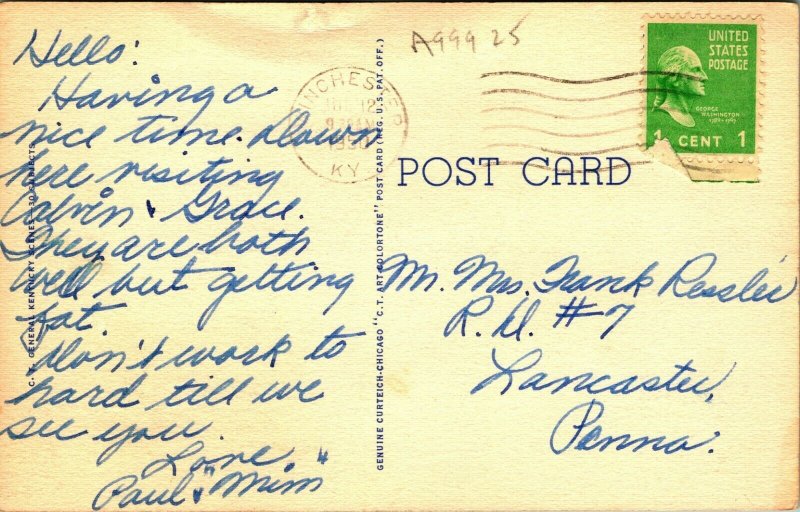 Hello:
Having a
nice time. Down
here visiting
Calvin & Grace.
They are both
well but getting
fat.
Don't work to
hard till we
see you.
Love
Paul & "Mim"
C.T. GENERAL KENTUCKY SCENES—30 SUBJECTS
GENUINE CURTEICH-CHICAGO "C.T. ART-COLORTONE" POST CARD (REG. U.S. PAT. OFF.)
A999 25
WINCHESTER
12
1950
KY
UNITED
STATES
POSTAGE
GEORGE
WASHINGTON
1789-1797
1 CENT 1
POST CARD
Mr. Mrs. Frank Ressler
R.D. #7
Lancaster,
Penna.